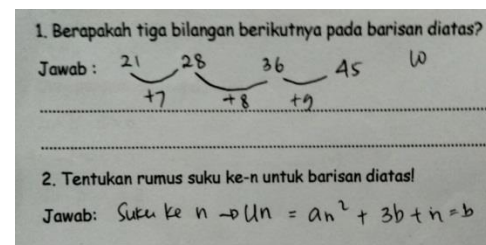 1. Berapakah tiga bilangan berikutnya pada barisan diatas?
Jawab : 21 28 36 45
+7 +8 +9
2. Tentukan rumus suku ke-n untuk barisan diatas!
Jawab: Suku ke n → Un = an² + 3b + n = b